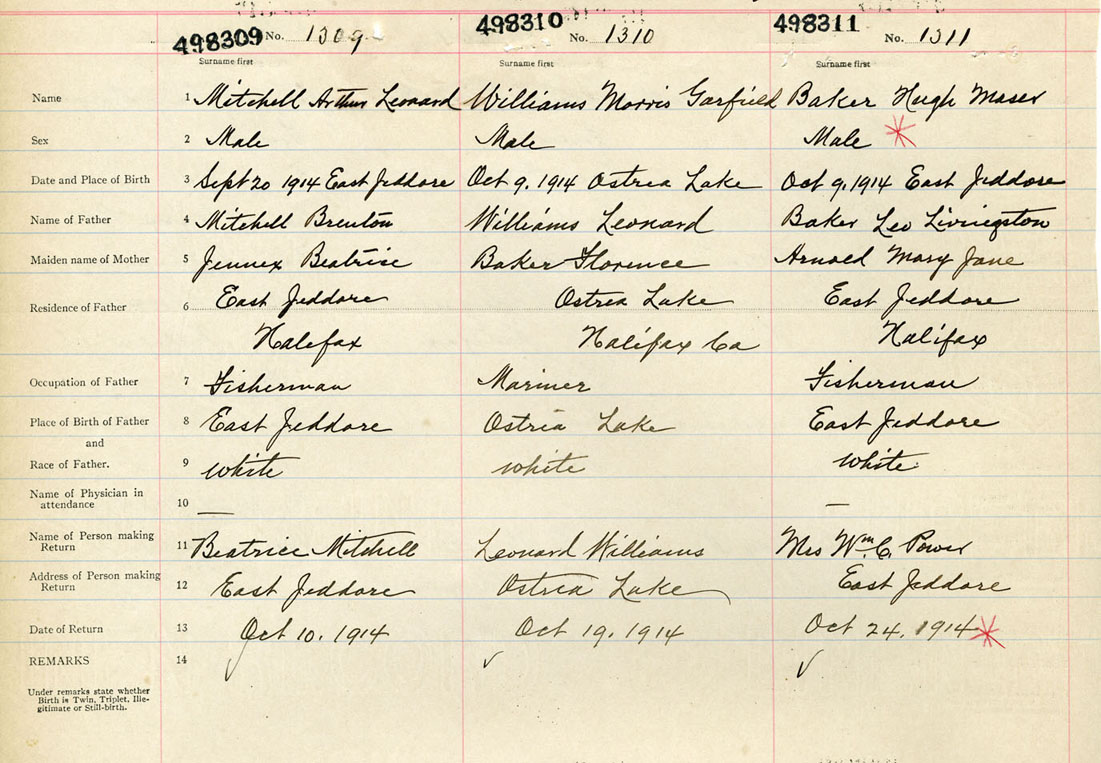 498309 No. 1309 498310 No. 1310 498311 No. 1311
Surname first Surname first Surname first
Name 1 Mitchell Arthur Leonard Williams Morris Garfield Baker Hugh Maser
Sex 2 Male Male Male
Date and Place of Birth 3 Sept 20 1914 East Jeddore Oct 9. 1914 Ostrea Lake Oct 9, 1914 East Jeddore
Name of Father 4 Mitchell Brenton Williams Leonard Baker Leo Livingston
Maiden name of Mother 5 Jennex Beatrice Baker Florence Arnold Mary Jane
Residence of Father 6 East Jeddore Ostrea Lake East Jeddore
Halifax Halifax Co Halifax
Occupation of Father 7 Fisherman Mariner Fisherman
Place of Birth of Father 8 East Jeddore Ostrea Lake East Jeddore
and
Race of Father. 9 White White White
Name of Physician in
attendance 10 — —
Name of Person making
Return 11 Beatrice Mitchell Leonard Williams Mrs Wm. C. Power
Address of Person making
Return 12 East Jeddore Ostrea Lake East Jeddore
Date of Return 13 Oct 10. 1914 Oct 19. 1914 Oct 24. 1914
REMARKS 14 ✓ ✓ ✓
Under remarks state whether
Birth is Twin, Triplet, Ille-
gitimate or Still-birth.